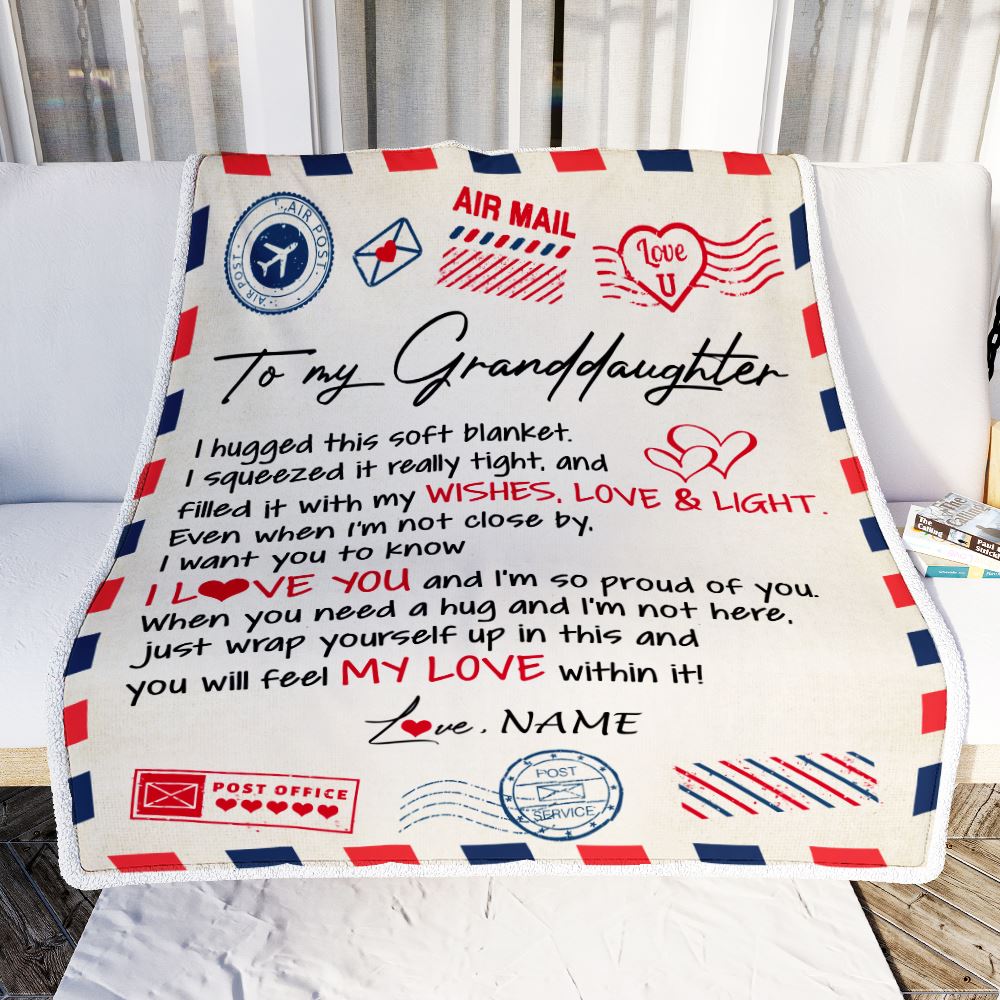 AIR POST
AIR POST
AIR MAIL
Love
U
To my Granddaughter
I hugged this soft blanket.
I squeezed it really tight, and
filled it with my WISHES, LOVE & LIGHT.
Even when I'm not close by,
I want you to know
I L♥VE YOU and I'm so proud of you.
When you need a hug and I'm not here,
just wrap yourself up in this and
you will feel MY LOVE within it!
L♥ve, NAME
POST OFFICE
POST
SERVICE
The
Calling
Paul